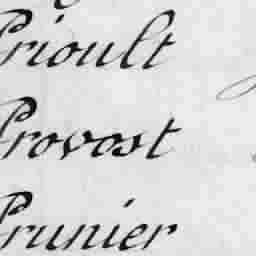 Prioult
Provost
Prunier